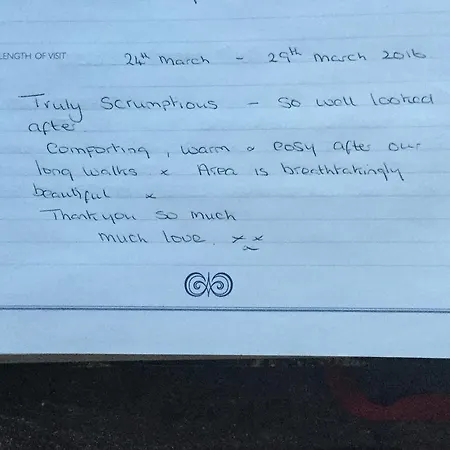 LENGTH OF VISIT 24th March - 29th March 2016
Truly Scrumptious - so well looked
after.
Comforting, warm & cosy after our
long walks x Area is breathtakingly
beautiful x
Thankyou so much
much love. x x
x